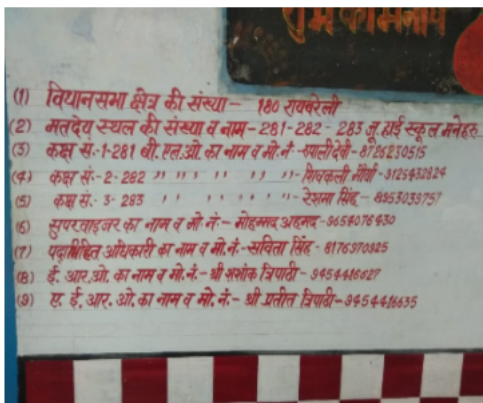 शुभ कामनाएं
(1) विधानसभा क्षेत्र की संख्या- 180 रायबरेली
(2) मतदेय स्थल की संख्या व नाम-281-282-283 जू हाई स्कूल मनेहरु
(3) कक्ष सं.-1-281 बी.एल.ओ का नाम व मो.नं.-रुपालीदेवी-8726230515
(4) कक्ष सं.-2-282 " " " " " "-शिवकली मौर्या-9125432824
(5) कक्ष सं.-3-283 " " " " " "-रेशमा सिंह-8953039757
(6) सुपरवाइजर का नाम व मो.नं.-मोहम्मद अहमद-9654076430
(7) पदाभिहित अधिकारी का नाम व मो.नं.-सविता सिंह-8176970925
(8) ई.आर.ओ.का नाम व मो.नं.-श्री अशोक त्रिपाठी-9454416627
(9) ए.ई.आर.ओ.का नाम व मो.नं.-श्री प्रतीत त्रिपाठी-9454416635